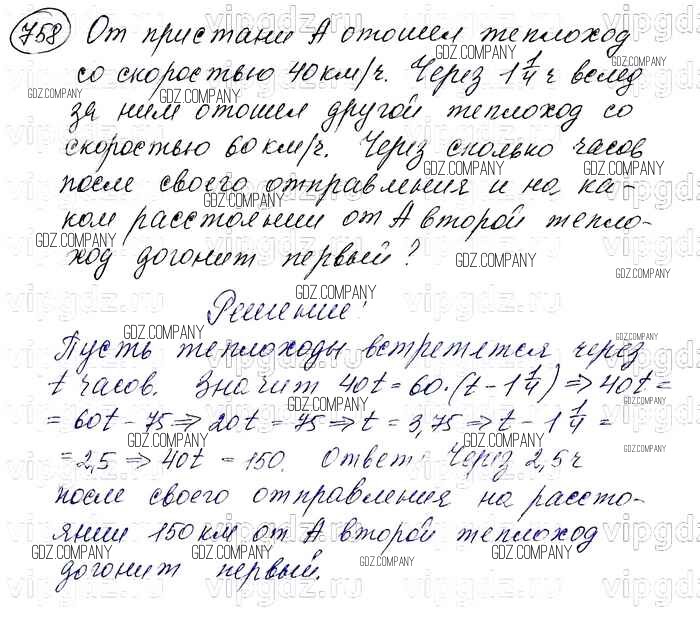 758 От пристани А отошел теплоход
со скоростью 40 км/ч. Через 1 1/4 ч вслед
за ним отошел другой теплоход со
скоростью 60 км/ч. Через сколько часов
после своего отправления и на ка-
ком расстоянии от А второй тепло-
ход догонит первый?
Решение:
Пусть теплоходы встретятся через
t часов. Значит 40t = 60·(t - 1 1/4) ⇒ 40t =
= 60t - 75 ⇒ 20t = 75 ⇒ t = 3,75 ⇒ t - 1 1/4 =
= 2,5 ⇒ 40t = 150. Ответ: Через 2,5 ч
после своего отправления на рассто-
янии 150 км от А второй теплоход
догонит первый.
GDZ.COMPANY
vipgdz.ru